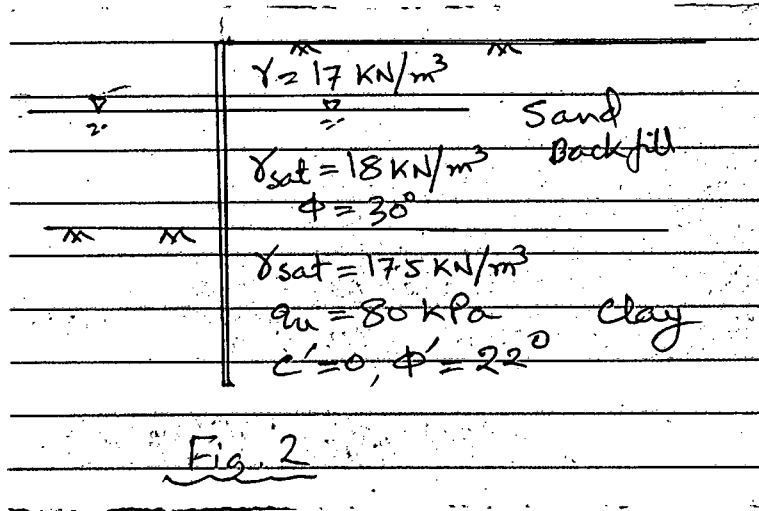 γ = 17 KN/m³
Sand
Backfill
γsat = 18 KN/m³
Φ = 30°
γsat = 17.5 KN/m³
qu = 80 kPa
Clay
c' = 0, Φ' = 22°
Fig. 2